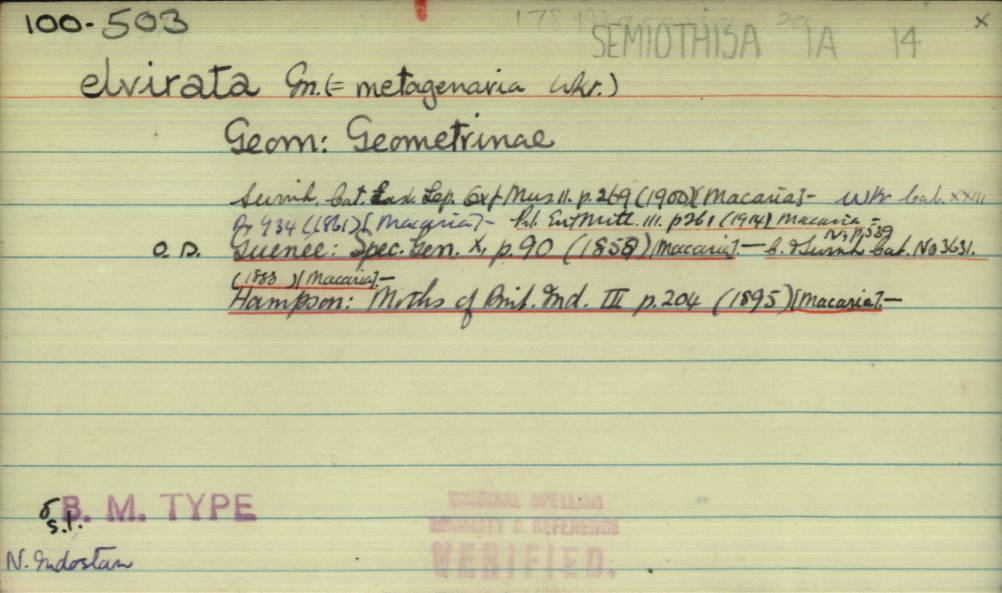 100-503 x
SEMIOTHISA 1A 14
elvirata Gn. (= metagenaria Wkr.)
Geom: Geometrinae
Swinh. Cat. East. Lep. Oxf Mus II. p. 269 (1900) [Macaria] - Wkr Cat. XXIII
p. 934 (1861) [Macaria] - Pal. Ent Mitt. III. p 261 (1914) Macaria -
O.D. Guenée: Spec. Gen. X, p. 90 (1858) [Macaria] - C. & Swinh Cat. No 3631.
p. 539
(1888) [Macaria] -
Hampson: Moths of Brit. Ind. III p. 204 (1895) [Macaria] -
B. M. TYPE
s.l.
N. Indostan
ORIGINAL SPELLING
LOCALITY & REFERENCE
VERIFIED.